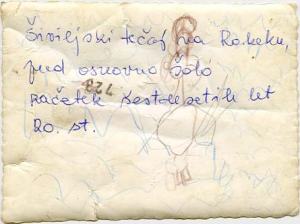 Šiviljski tečaj na Rakeku,
pred osnovno šolo
723
začetek šestdesetih let
20. st.